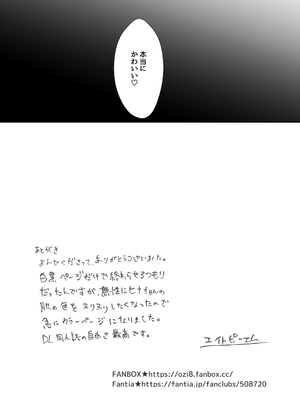 本当に
かわいい♡
あとがき
よんでくださって、ありがとうございました。
白黒ページだけで終わらせるつもり
だったんですが、無性にヒナイちゃんの
肌の色をヌリヌリしたくなったので
急にカラーページになりました。
DL同人誌の自由さ最高です。
エイトピーエム
FANBOX★https://ozi8.fanbox.cc/
Fantia★https://fantia.jp/fanclubs/508720